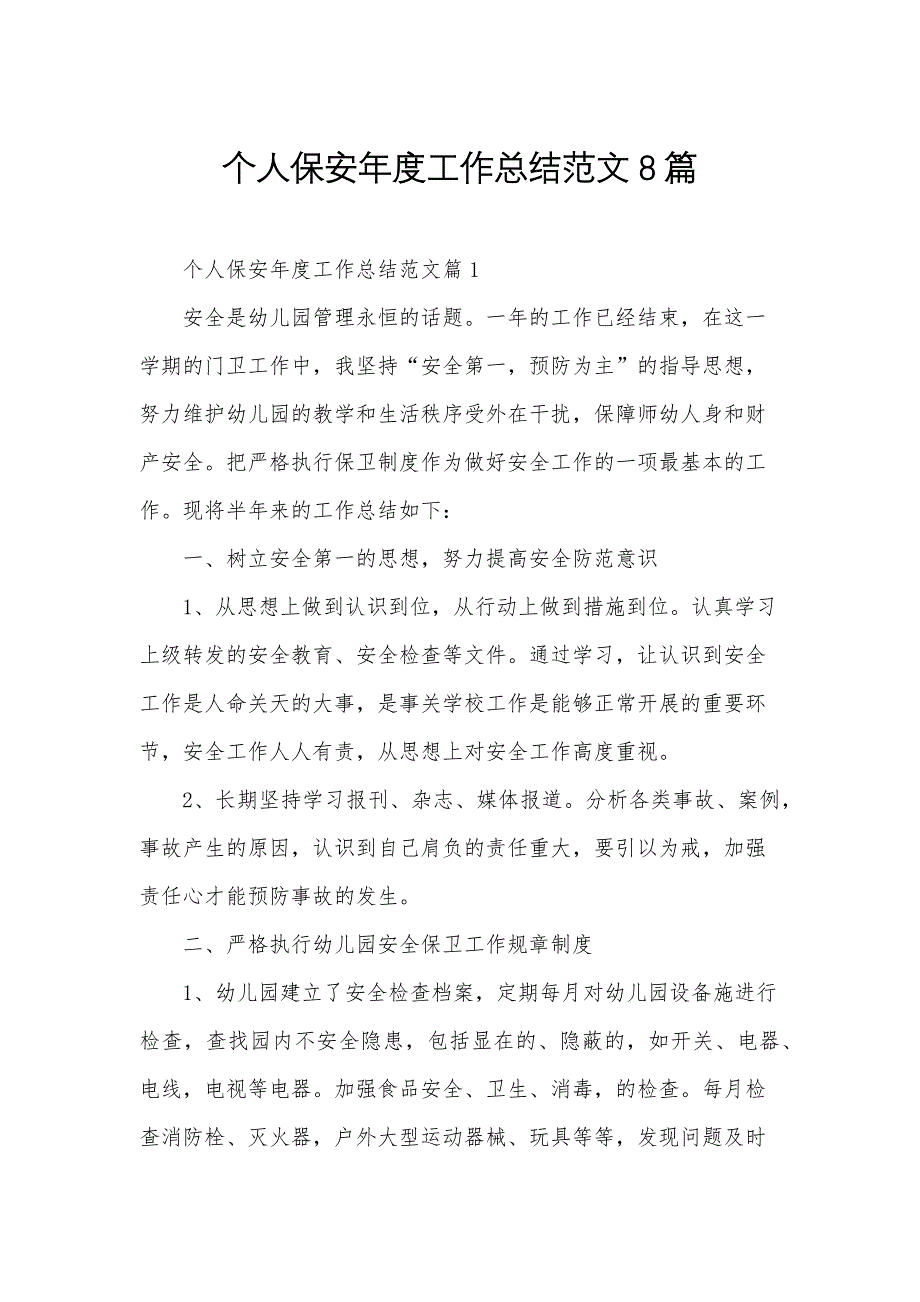 个人保安年度工作总结范文8篇
个人保安年度工作总结范文篇1
安全是幼儿园管理永恒的话题。一年的工作已经结束，在这一
学期的门卫工作中，我坚持“安全第一，预防为主”的指导思想，
努力维护幼儿园的教学和生活秩序受外在干扰，保障师幼人身和财
产安全。把严格执行保卫制度作为做好安全工作的一项最基本的工
作。现将半年来的工作总结如下：
一、树立安全第一的思想，努力提高安全防范意识
1、从思想上做到认识到位，从行动上做到措施到位。认真学习
上级转发的安全教育、安全检查等文件。通过学习，让认识到安全
工作是人命关天的大事，是事关学校工作是能够正常开展的重要环
节，安全工作人人有责，从思想上对安全工作高度重视。
2、长期坚持学习报刊、杂志、媒体报道。分析各类事故、案例，
事故产生的原因，认识到自己肩负的责任重大，要引以为戒，加强
责任心才能预防事故的发生。
二、严格执行幼儿园安全保卫工作规章制度
1、幼儿园建立了安全检查档案，定期每月对幼儿园设备施进行
检查，查找园内不安全隐患，包括显在的、隐蔽的，如开关、电器、
电线，电视等电器。加强食品安全、卫生、消毒，的检查。每月检
查消防栓、灭火器，户外大型运动器械、玩具等等，发现问题及时